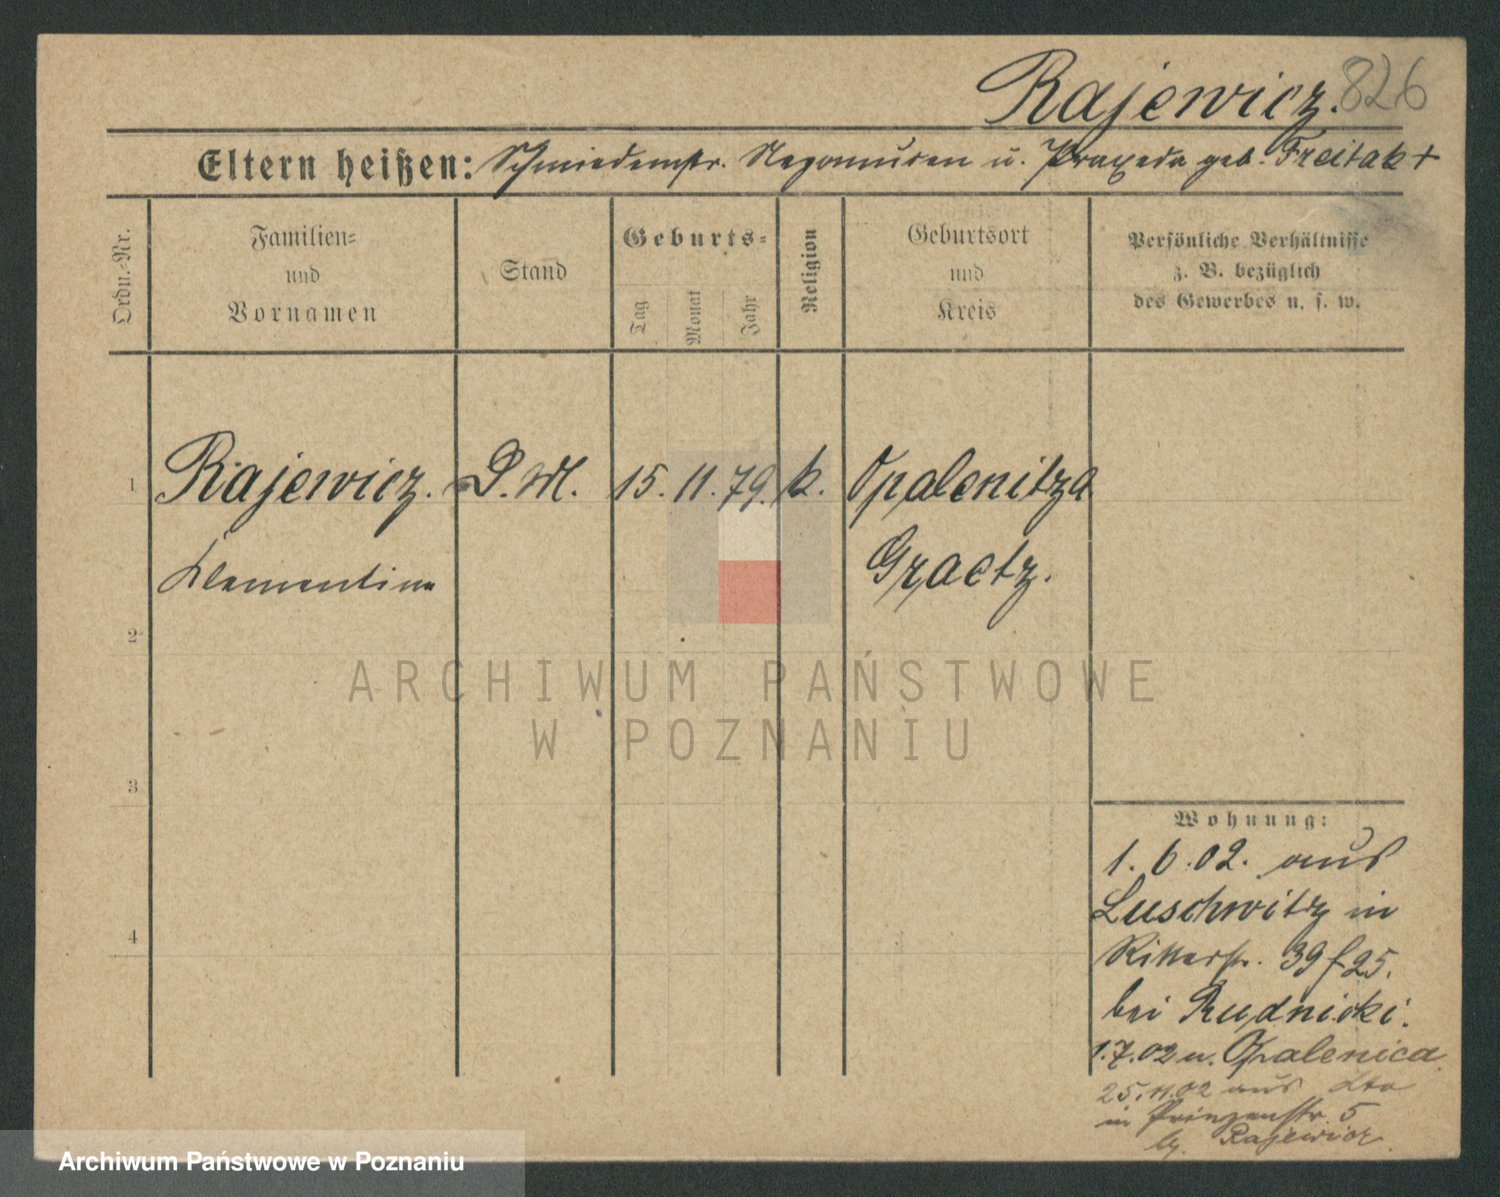 Rajewicz. 826
Eltern heißen: Schmiedemstr. Nepomucen u. Praxeda geb. Freitak +
Ordn.-Nr.
Familien=
und
Vornamen
Stand
Geburts=
Tag
Monat
Jahr
Religion
Geburtsort
und
Kreis
Persönliche Verhältnisse
z. B. bezüglich
des Gewerbes u. s. w.
1 Rajewicz. D. M. 15. 11. 79. k. Opalenitza
Klementine Graetz.
2
ARCHIWUM PAŃSTWOWE
W POZNANIU
3
Wohnung:
1. 6. 02. aus
Luschwitz in
4
Ritterstr. 39 f 25.
bei Rudnicki.
1.7.02 n. Opalenica
25.11.02 aus dto
in Prinzenstr. 5
Rajewicz.
Archiwum Państwowe w Poznaniu